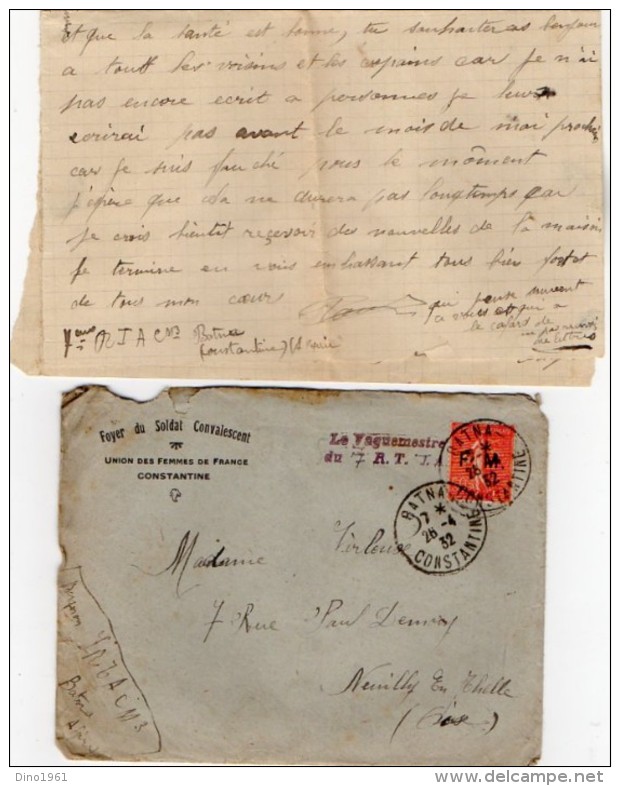 et que la santé est bonne, tu souhaiteras bonjour
a tous les voisins et les copains car je n'ai
pas encore ecrit a personnes je leur
ecrirai pas avant le mois de mai prochain
car je suis fauché pour le môment
j'espère que cela ne durera pas longtemps car
je crois bientôt reçevoir des nouvelles de la maison
Je termine en vous embrassant tous bien fort
de tous mon cœur
qui pense souvent
a vous et qui a
le cafard de
de lettres
7eme R T A C M 3 Batna
(Constantine) Algérie
Foyer du Soldat Convalescent
UNION DES FEMMES DE FRANCE
CONSTANTINE
Le Vaguemestre
du 7 R. T. A.
F. M.
BATNA
26
32
CONSTANTINE
BATNA
7 *
26 -4
32
CONSTANTINE
Madame Verleuse
7 Rue Paul
Neuilly En Thelle
(Oise)
Batna
Dino1961
delcampe.net